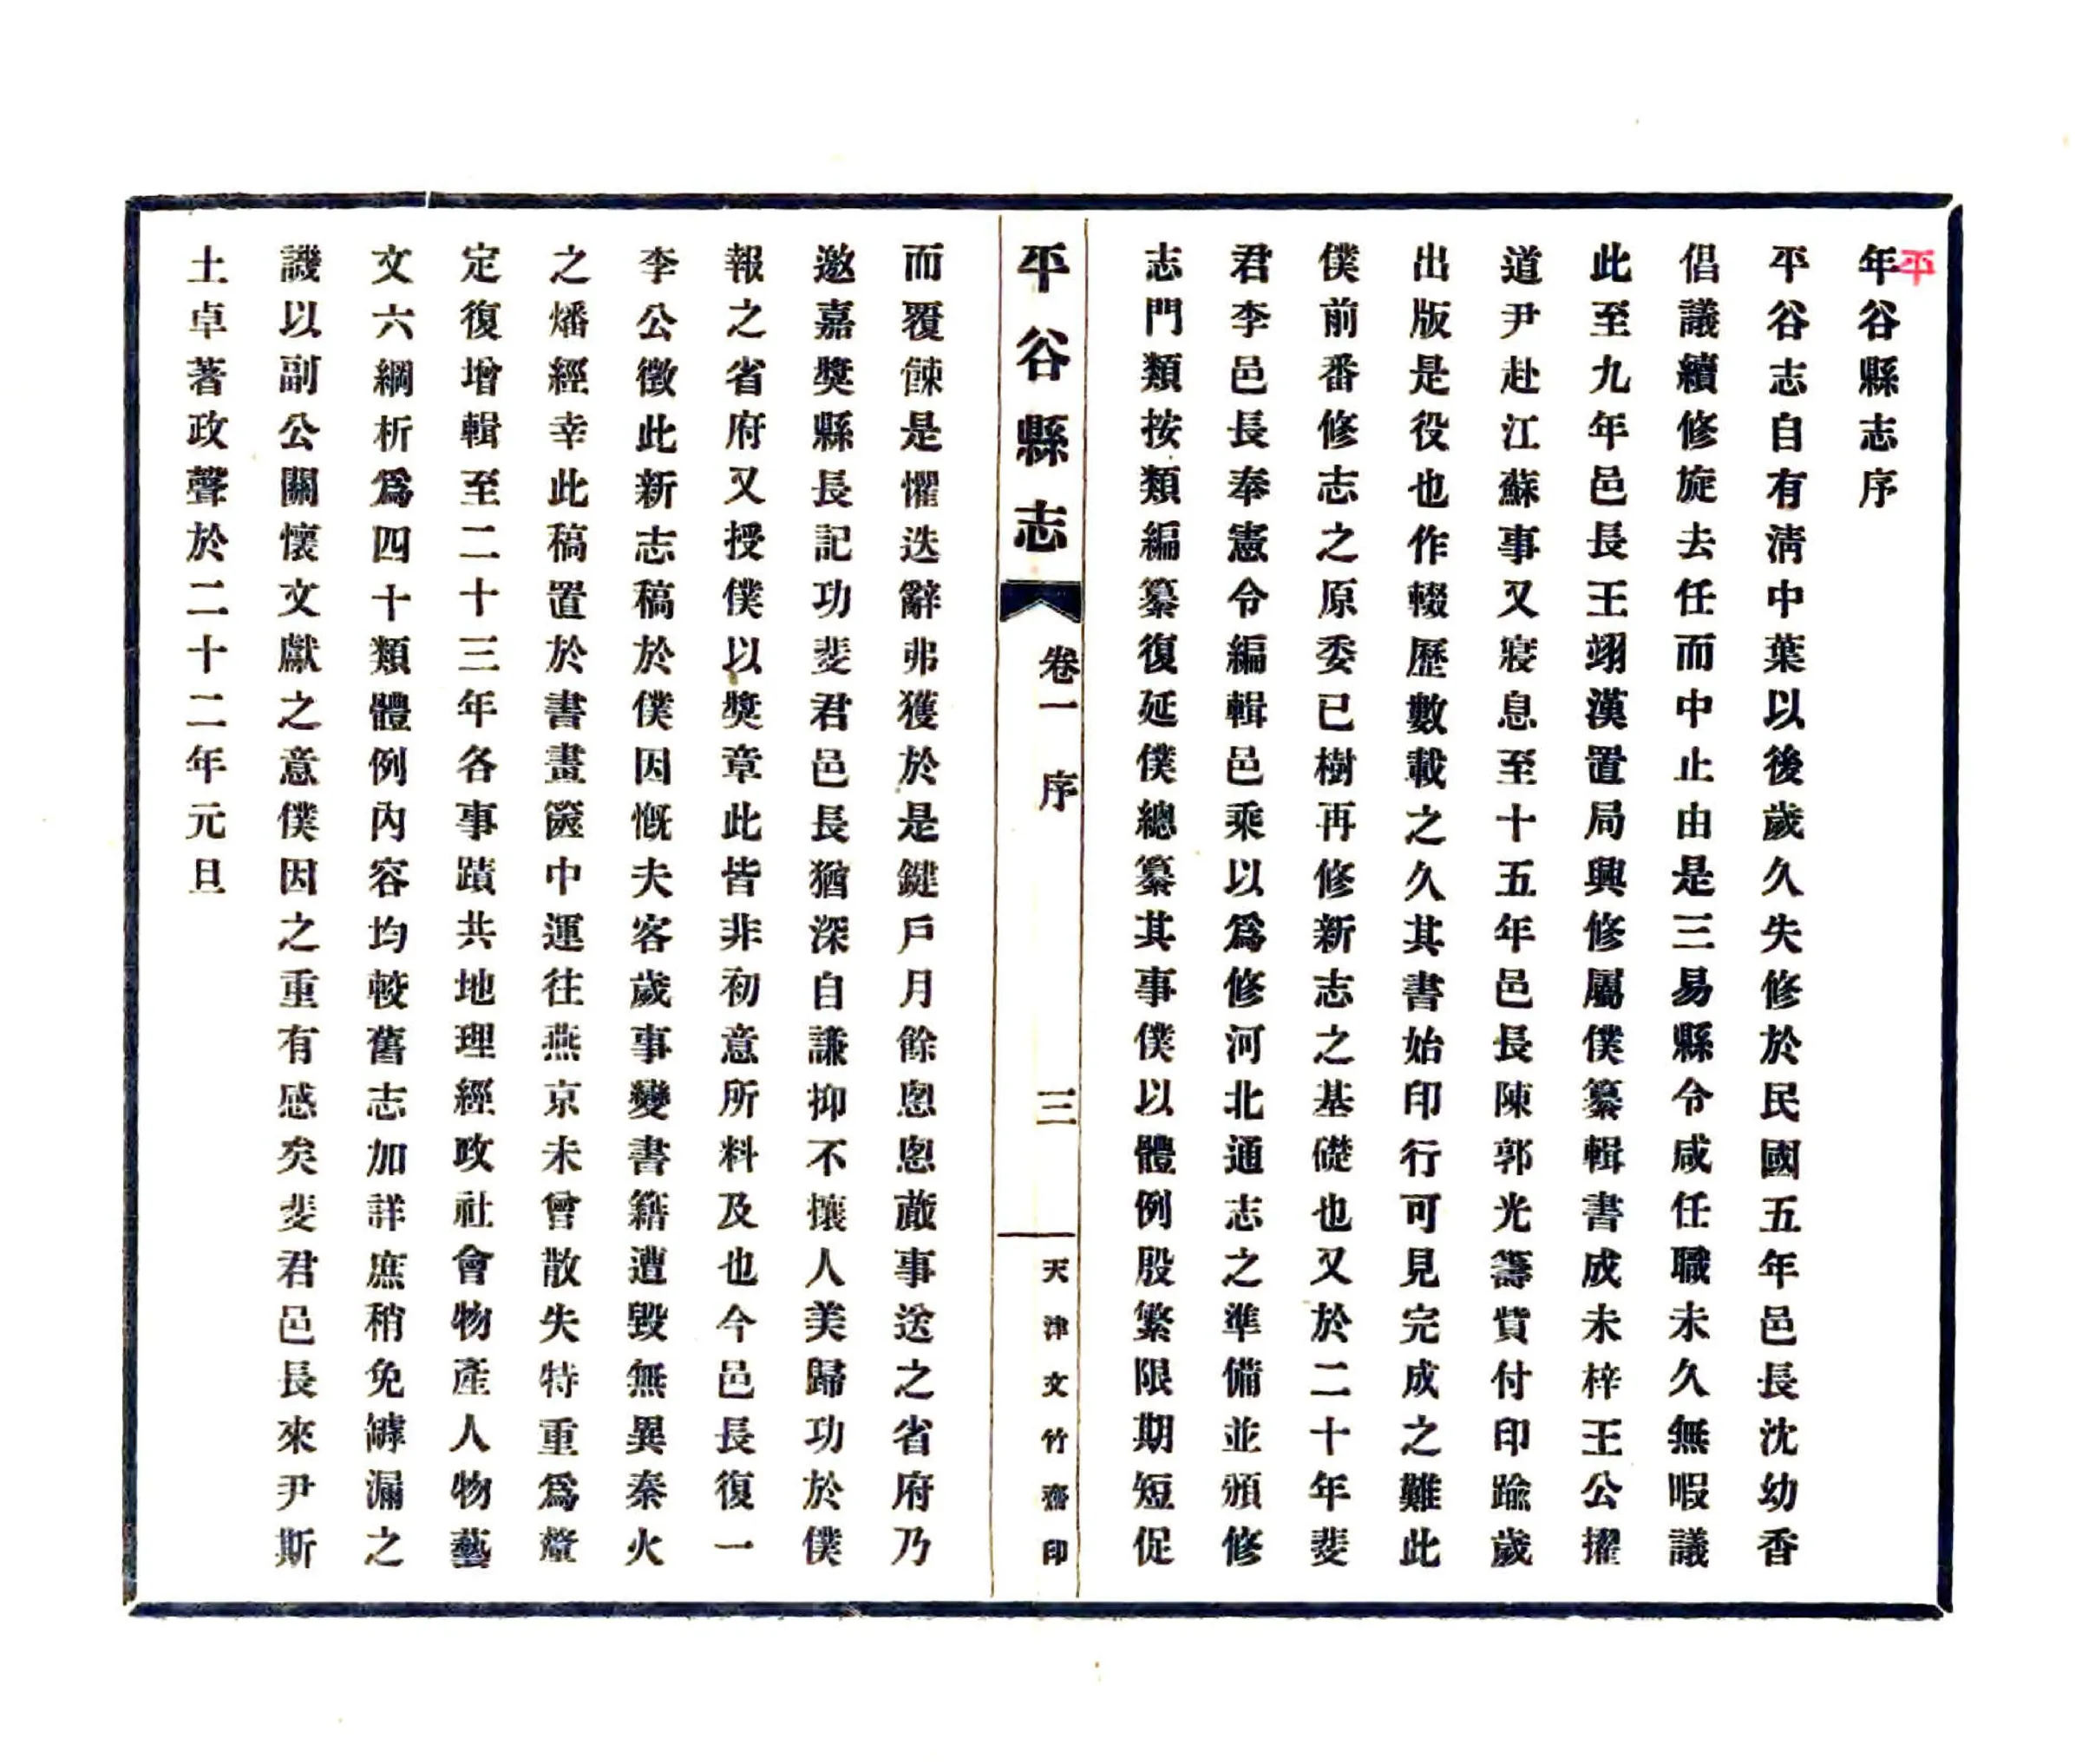 年谷縣志序
平
平谷志自有淸中葉以後歲久失修於民國五年邑長沈幼香
倡議續修旋去任而中止由是三易縣令咸任職未久無暇議
此至九年邑長王翊漢置局興修屬僕纂輯書成未梓王公擢
道尹赴江蘇事又寢息至十五年邑長陳郭光籌貲付印踰歲
出版是役也作輟歷數載之久其書始印行可見完成之難此
僕前番修志之原委已樹再修新志之基礎也又於二十年斐
君李邑長奉憲令編輯邑乘以爲修河北通志之準備並頒修
志門類按類編纂復延僕總纂其事僕以體例殷繁限期短促
平谷縣志
卷一 序
三
天津文竹齋印
而覆餗是懼迭辭弗獲於是鍵戶月餘恩恩蕆事送之省府乃
邀嘉獎縣長記功斐君邑長猶深自謙抑不攘人美歸功於僕
報之省府又授僕以獎章此皆非初意所料及也今邑長復一
李公徵此新志稿於僕因慨夫客歲事變書籍遭毀無異秦火
之燔經幸此稿置於書畫篋中運往燕京未曾散失特重爲釐
定復增輯至二十三年各事蹟共地理經政社會物產人物藝
文六綱析爲四十類體例內容均較舊志加詳庶稍免罅漏之
譏以副公關懷文獻之意僕因之重有感矣斐君邑長來尹斯
土卓著政聲於二十二年元旦